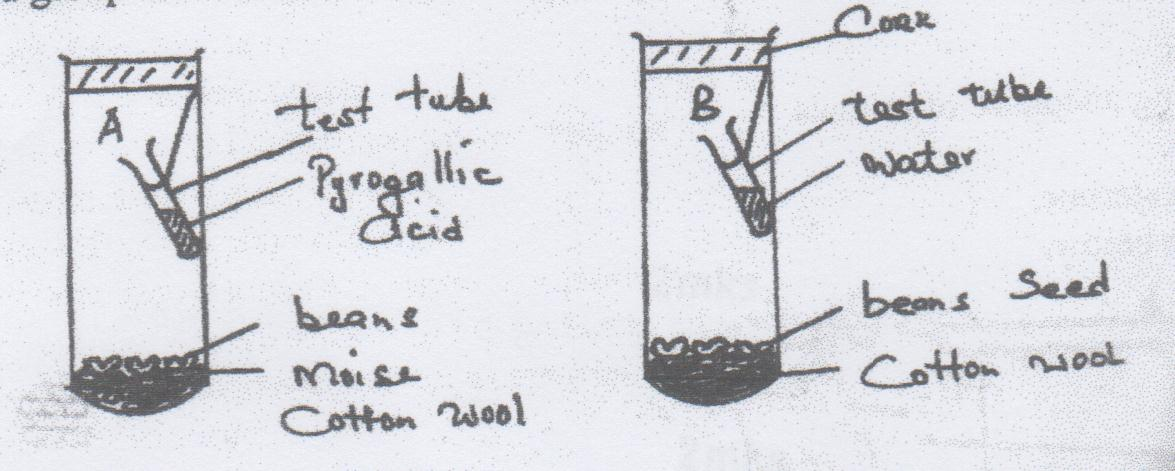 A
test tube
Pyrogallic
acid
beans
Moise
Cotton wool
Coax
B
test tube
water
beans Seed
Cotton wool